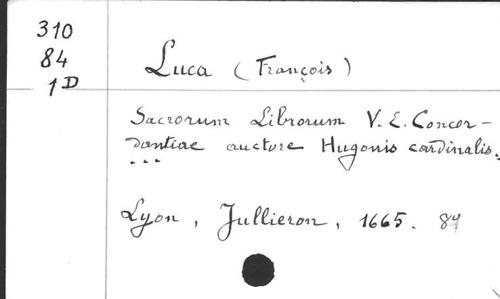 310
84
1D
Luca (François)
Sacrorum Librorum V. E. Concor-
dantiae auctore Hugonis cardinalis.
...
Lyon, Jullieron, 1665. 84